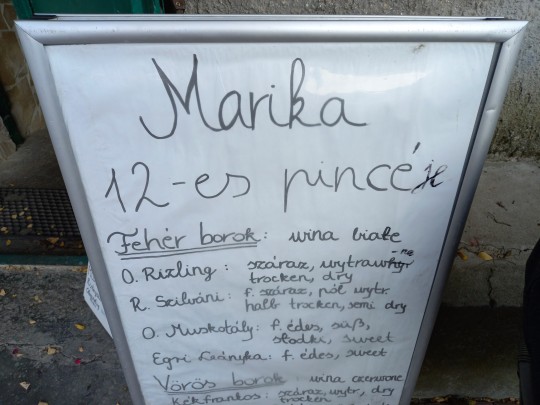 Marika
12-es pincéje
Fehér borok: wina białe
O. Rizling: száraz, wytrawne
trocken, dry
R. Szilváni: f. száraz, pół wytr.
halb trocken, semi dry
O. Muskotály: f. édes, süß,
słodki, sweet
Egri Leányka: f. édes, sweet
Vörös borok: wina czerwone
Kékfrankos: száraz, wytr, dry
trocken